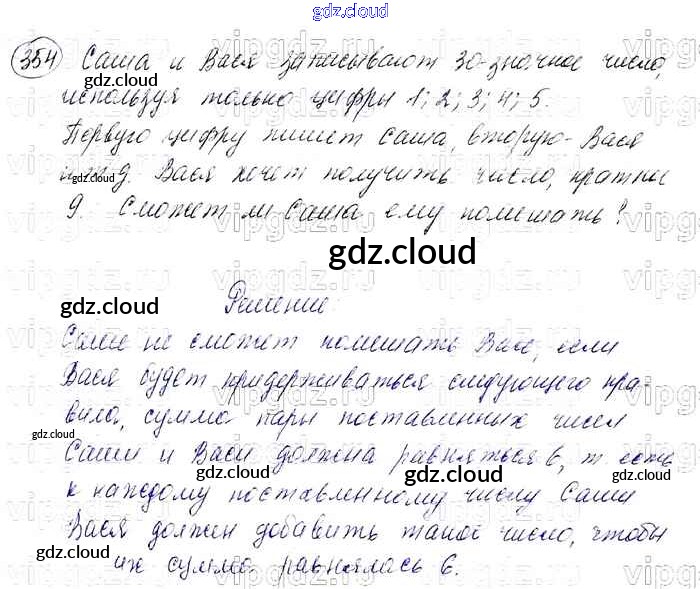 gdz.cloud
354 Саша и Вася записывают 30-значное число,
gdz.cloud
используя только цифры 1; 2; 3; 4; 5.
Первую цифру пишет Саша, вторую - Вася
и т.д. Вася хочет получить число, кратны
9. Сможет ли Саша ему помешать?
gdz.cloud
gdz.cloud
Решение:
Саше не сможет помешать Васе, если
Вася будет придерживаться следующего пра-
вила, сумма пары поставленных чисел
gdz.cloud gdz.cloud
Саши и Васи должна равняться 6, т есть
gdz.cloud gdz.cloud
к каждому поставленному числу Саши
Вася должен добавить такое число, чтобы
gdz.cloud gdz.cloud
их сумма равнялась 6.